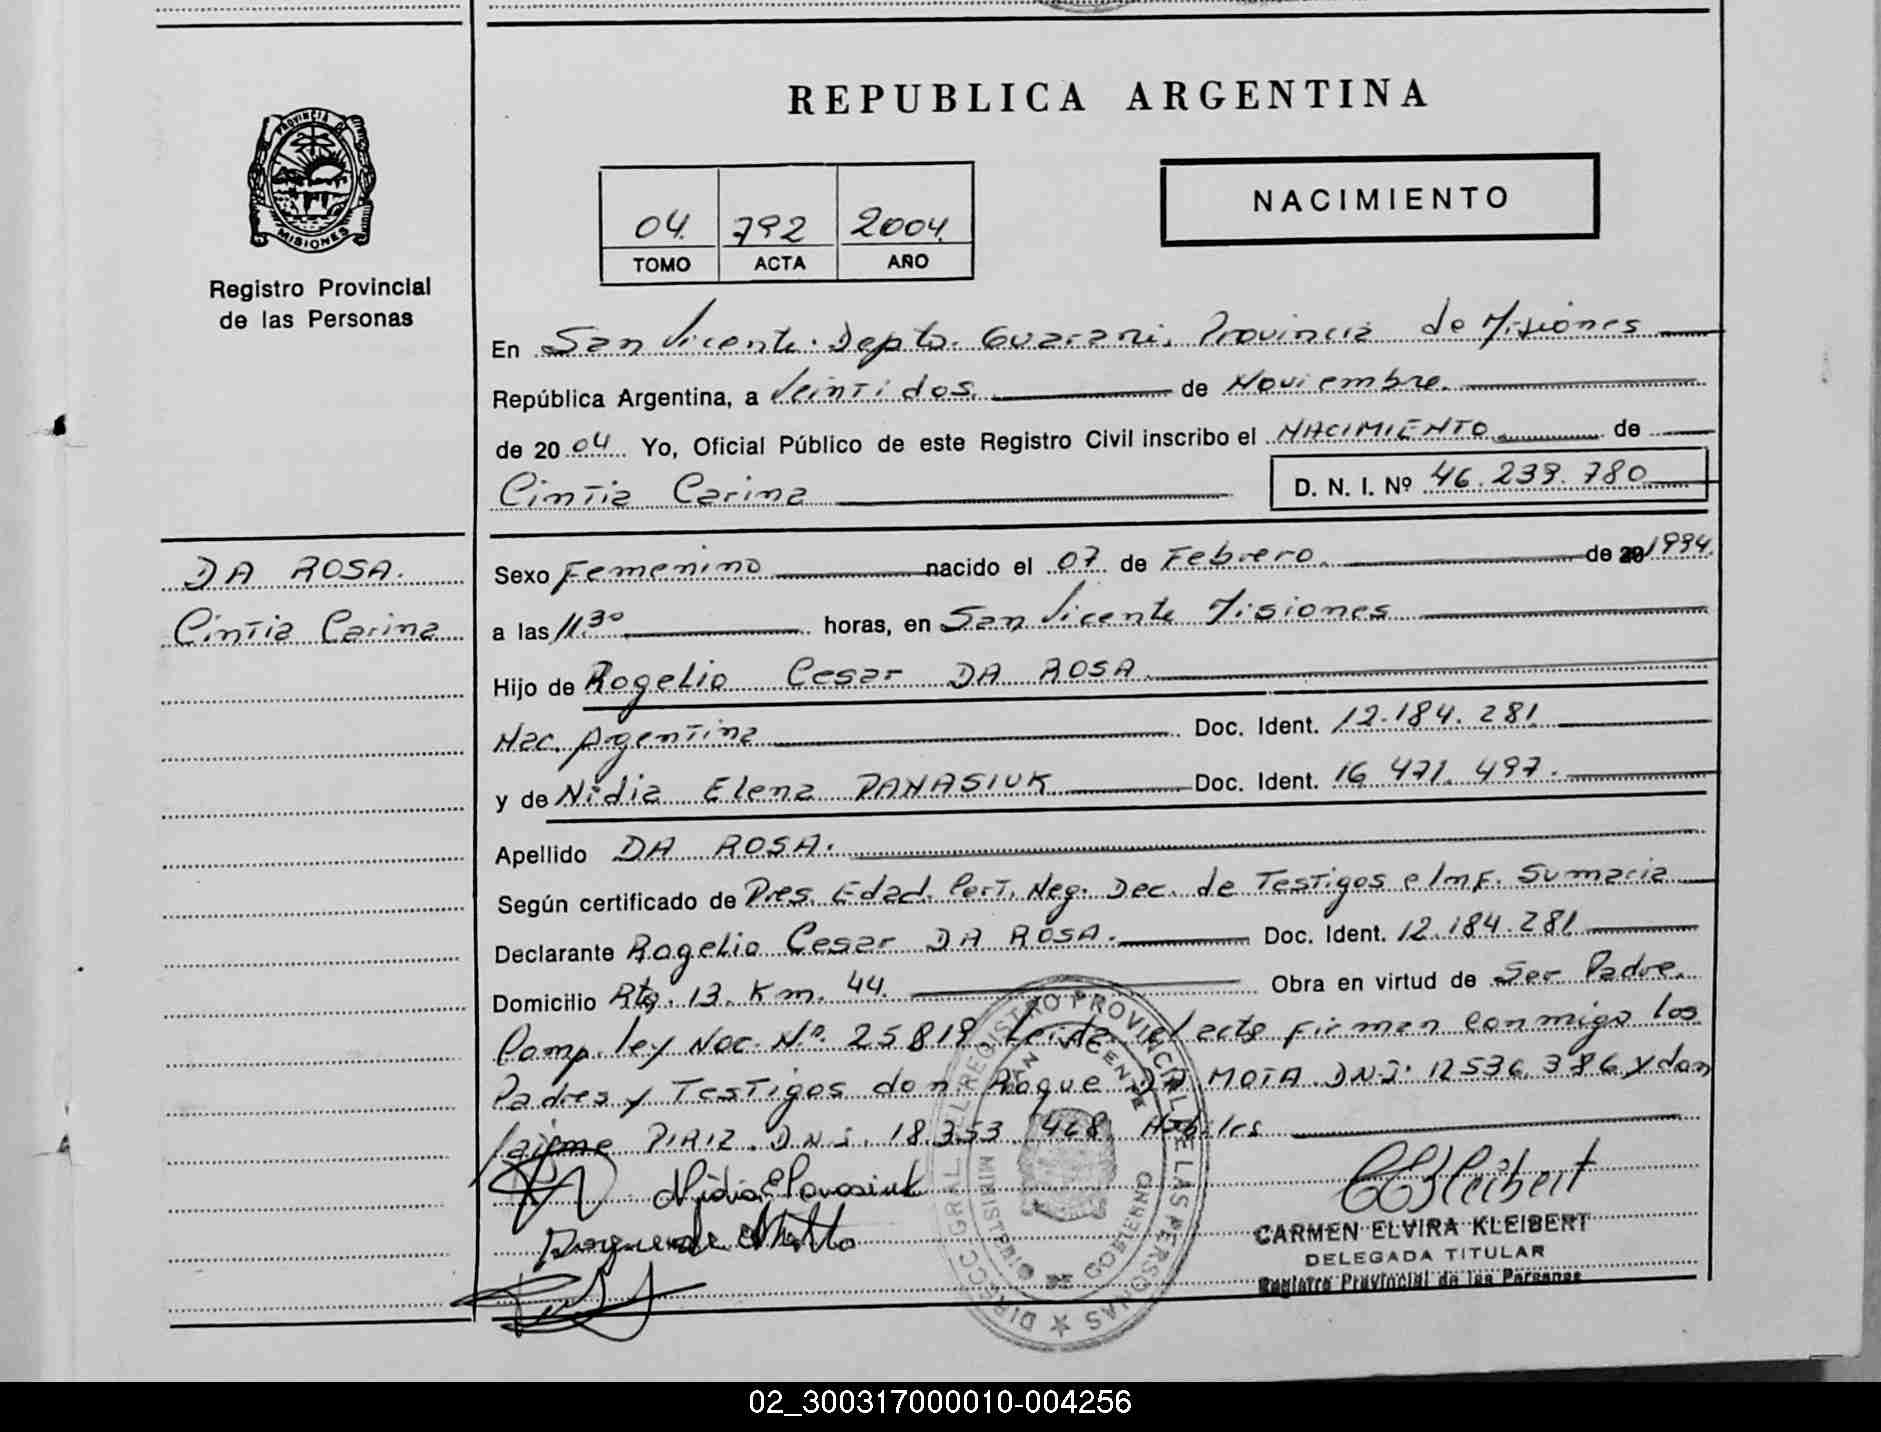 REPUBLICA ARGENTINA
PROVINCIA DE
MISIONES
Registro Provincial
de las Personas
04. 792 2004.
TOMO ACTA AÑO
NACIMIENTO
En San Vicente. Depto. Guarani. Provincia de Misiones
República Argentina, a Veintidos. de Noviembre.
de 20 04 Yo, Oficial Público de este Registro Civil inscribo el NACIMIENTO de
Cintia Carina D. N. I. Nº 46.239.780
DA ROSA.
Cintia Carina
Sexo Femenino nacido el 07 de Febrero. de 1994.
a las 11.30 horas, en San Vicente Misiones
Hijo de Rogelio Cesar DA ROSA.
Nac. Argentina Doc. Ident. 12.184.281
y de Nidia Elena PANASIUK Doc. Ident. 16 471.497.
Apellido DA ROSA.
Según certificado de Pres. Edad. Part. Neg. Dec. de Testigos e Inf. Sumaria
Declarante Rogelio Cesar DA ROSA. Doc. Ident. 12.184.281
Domicilio Rta. 13. Km. 44. Obra en virtud de Ser Padre.
Comp. ley Nac. Nº. 25819 Leida el acta firman conmigo los
Padres y Testigos don Roque DA MOTA. DNI. 12536.386 y don
Jaime PIRIZ. DNI. 18.353.428. Habiles
CARMEN ELVIRA KLEIBERT
DELEGADA TITULAR
Registro Provincial de las Personas
DIRECC. GRAL. DEL REGISTRO PROVINCIAL DE LAS PERSONAS
SAN VICENTE
MINISTERIO DE GOBIERNO
02_300317000010-004256